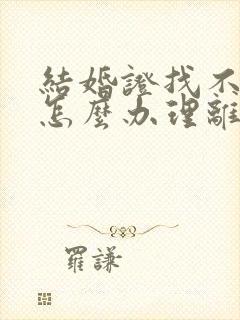 結婚證找不
怎麼办理離
羅謙